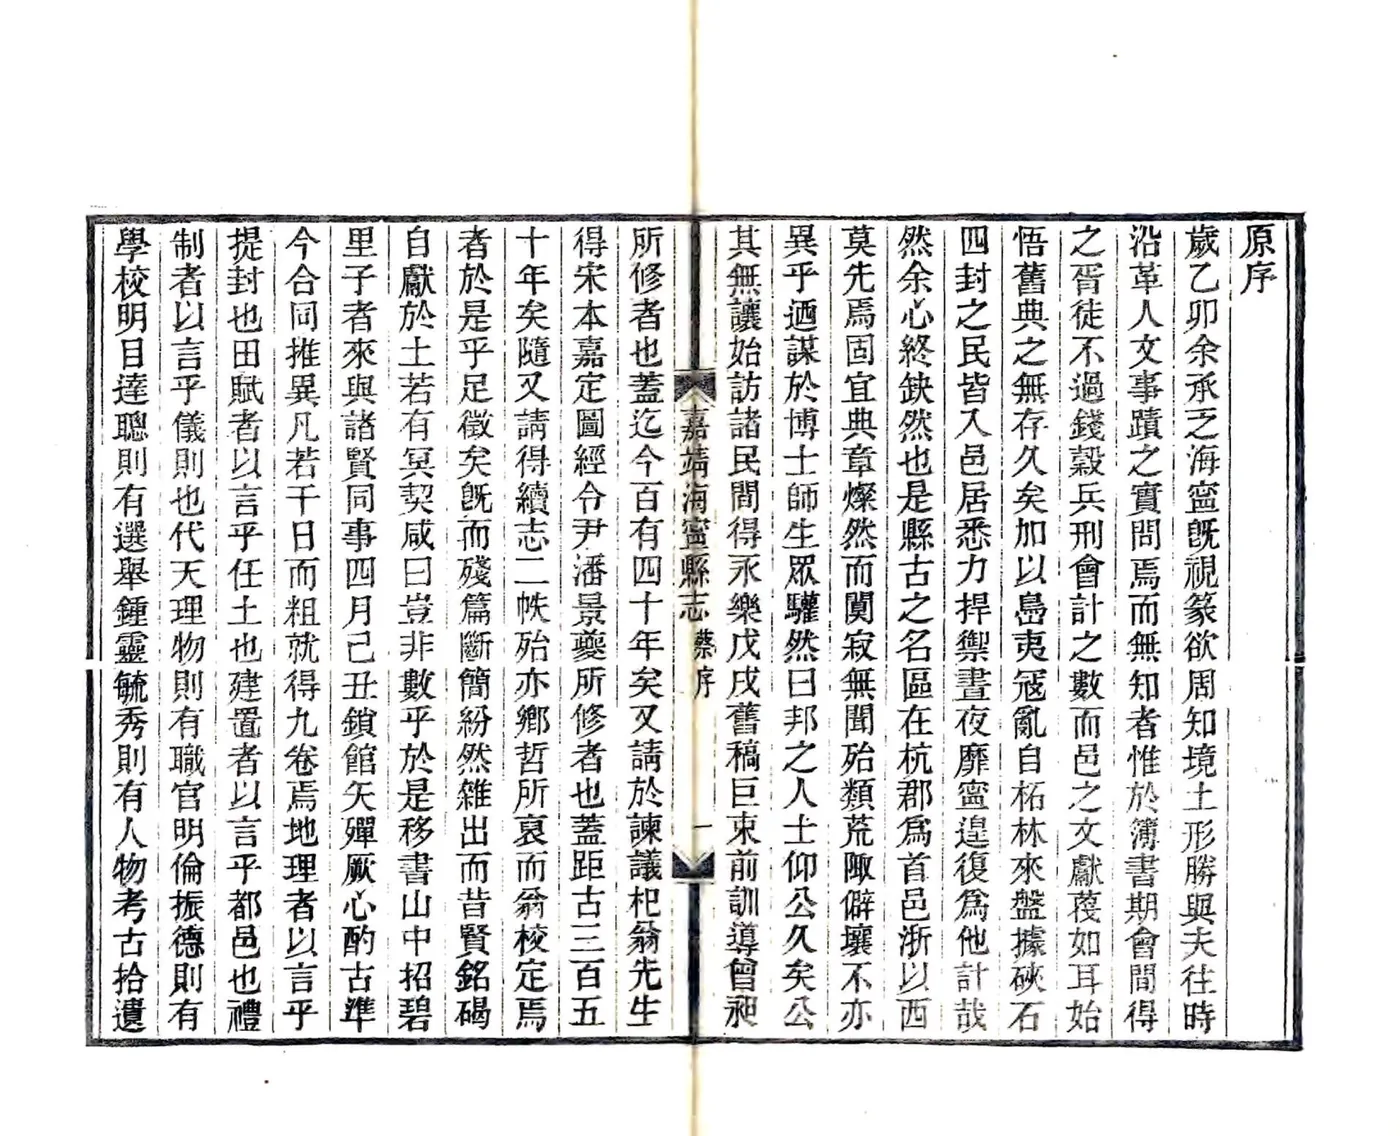 原序
歲乙卯余承乏海寧旣視篆欲周知境土形勝與夫往時
沿革人文事蹟之實問焉而無知者惟於簿書期會間得
之胥徒不過錢穀兵刑會計之數而邑之文獻蔑如耳始
悟舊典之無存久矣加以島夷冦亂自柘林來盤據硤石
四封之民皆入邑居悉力捍禦晝夜靡寧遑復爲他計哉
然余心終缺然也是縣古之名區在杭郡爲首邑浙以西
莫先焉固宜典章燦然而闃寂無聞殆類荒陬僻壤不亦
異乎迺謀於博士師生眾驩然曰邦之人士仰公久矣公
其無讓始訪諸民間得永樂戊戌舊稿巨束前訓導曾昶
嘉靖海寧縣志
蔡序
一
所修者也蓋迄今百有四十年矣又請於諫議杞翁先生
得宋本嘉定圖經令尹潘景夔所修者也蓋距古三百五
十年矣隨又請得續志二帙殆亦鄉哲所裒而翁校定焉
者於是乎足徵矣旣而殘篇斷簡紛然雜出而昔賢銘碣
自獻於土若有冥契咸曰豈非數乎於是移書山中招碧
里子者來與諸賢同事四月己丑鎖館矢殫厥心酌古準
今合同推異凡若干日而粗就得九卷焉地理者以言乎
提封也田賦者以言乎任土也建置者以言乎都邑也禮
制者以言乎儀則也代天理物則有職官明倫振德則有
學校明目達聰則有選舉鍾靈毓秀則有人物考古拾遺